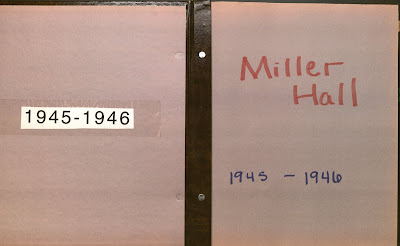 1945-1946
Miller
Hall
1945 - 1946